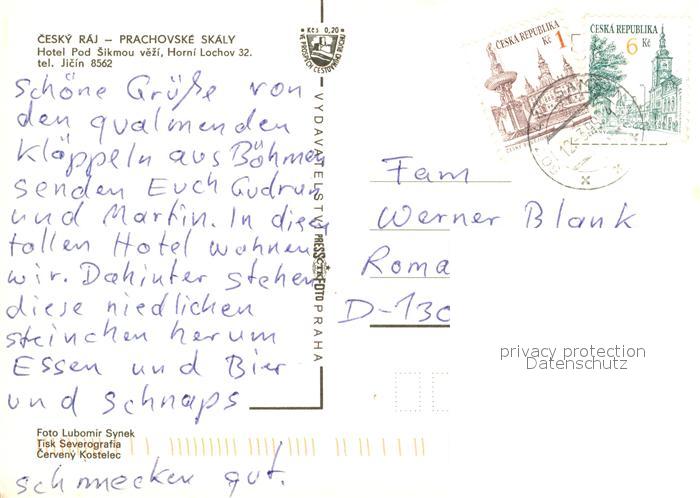 ČESKÝ RÁJ – PRACHOVSKÉ SKÁLY
Hotel Pod Šikmou věží, Horní Lochov 32.
tel. Jičín 8562
schöne Grüße von
den qualmenden
Kläppeln aus Böhmen
senden Euch Gudrun
und Martin. In diesem
tollen Hotel wohnen
wir. Dahinter stehen
diese niedlichen
steinchen herum
Essen und Bier
und Schnaps
schmecken gut.
Foto Lubomír Synek
Tisk Severografia
Červený Kostelec
Kčs 0,20
VYDAVATELSTVÍ
PRESSFOTO
PRAHA
ČESKÁ REPUBLIKA
1 Kč
ČESKÁ REPUBLIKA
6 Kč
Fam
Werner Blank
Roma
D-130
privacy protection
Datenschutz